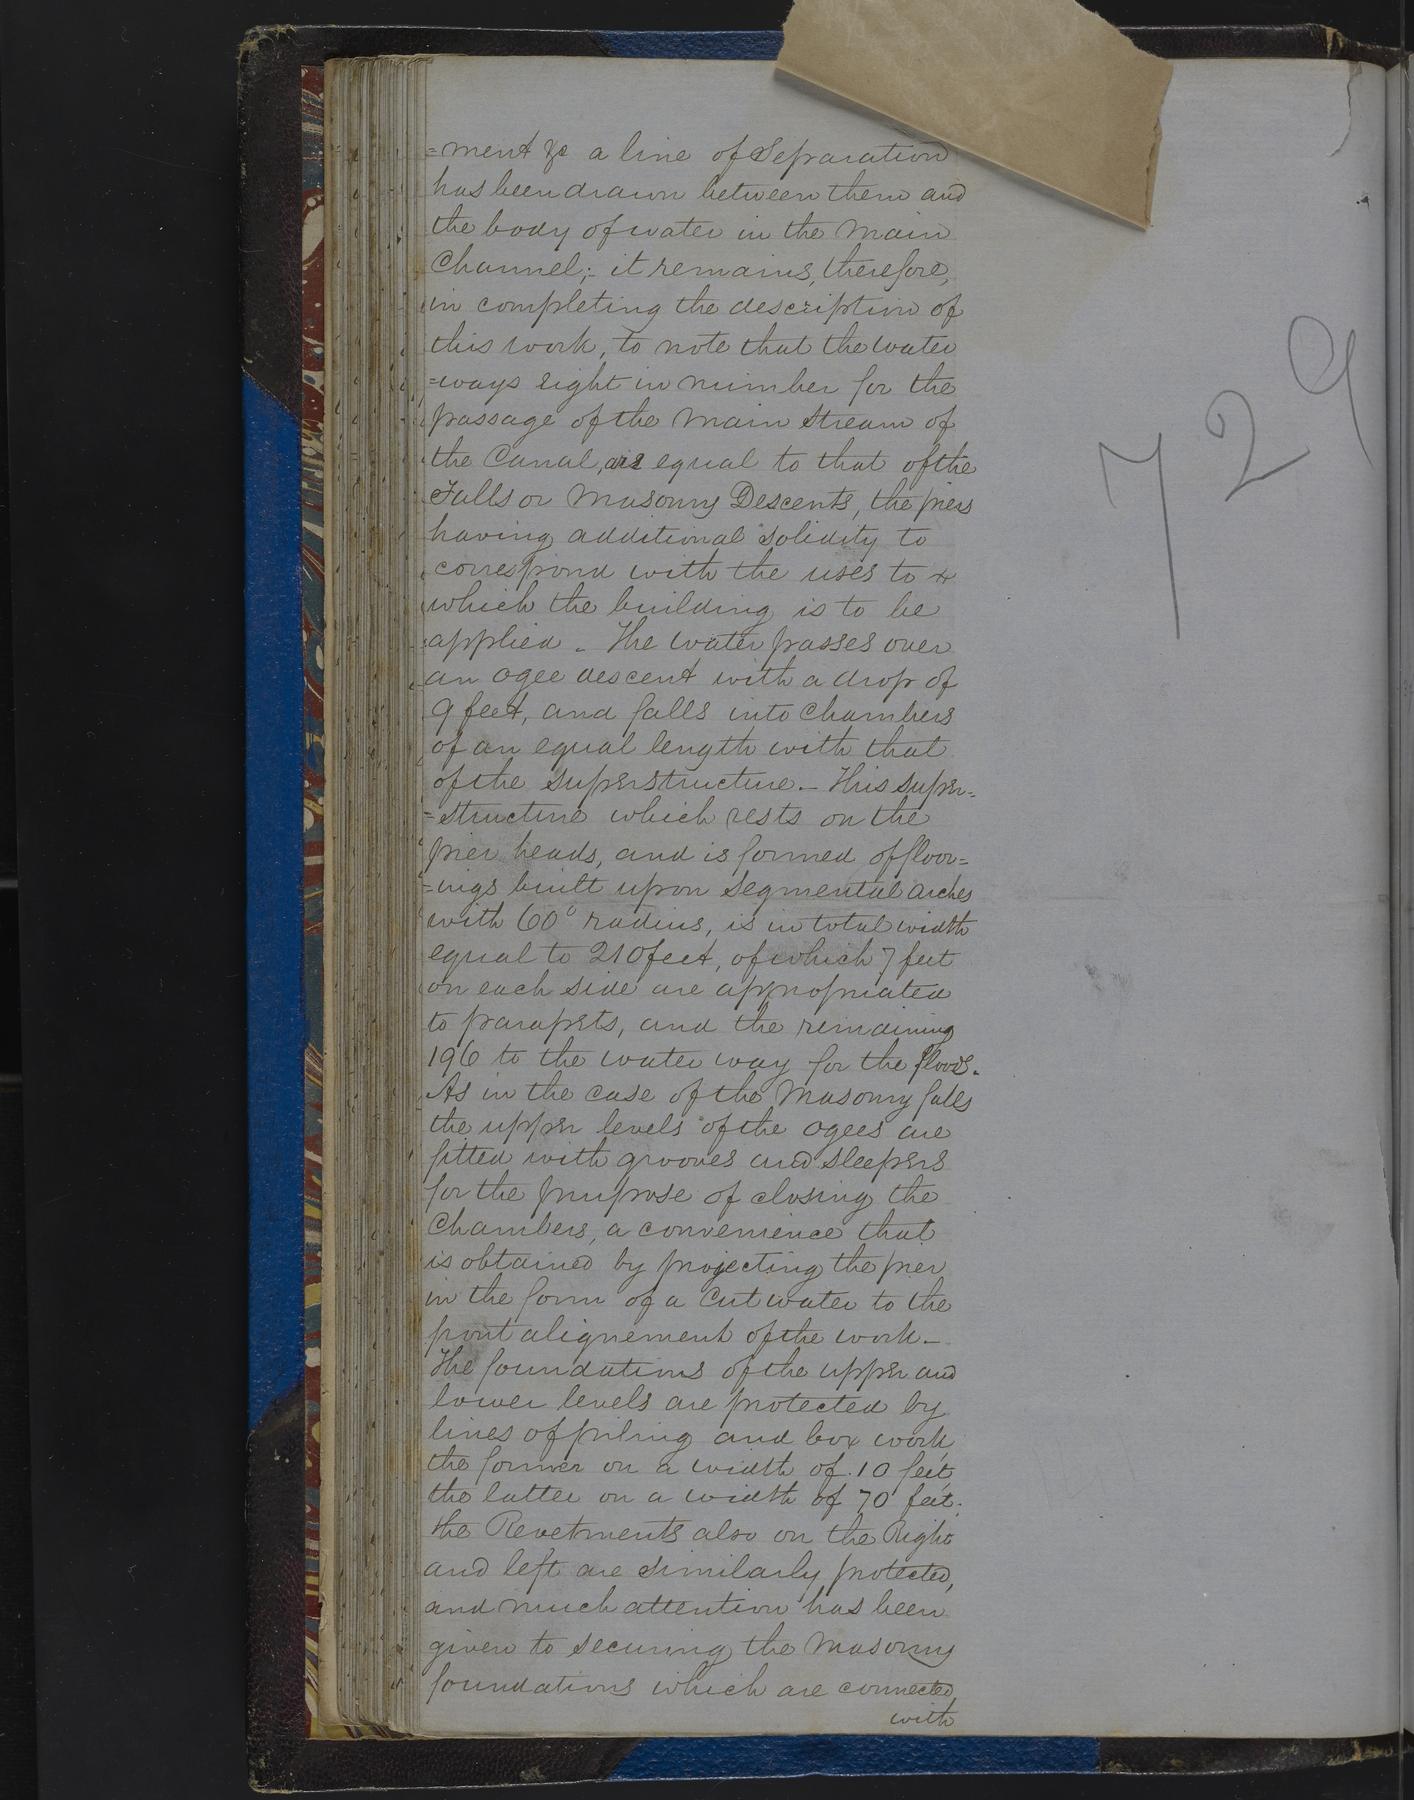 =ment &c a line of Separation
has been drawn between them and
the body of water in the Main
Channel;- it remains, therefore,
in completing the description of
this work, to note that the water
=ways eight in number for the
passage of the Main Stream of
the Canal, are equal to that of the
Falls or Masonry Descents, the piers
having additional solidity to
correspond with the uses to
which the building is to be
applied. The water passes over
an ogee descent with a drop of
9 feet, and falls into Chambers
of an equal length with that
of the superstructure.- This super-
=structure which rests on the
pier heads, and is formed of floor=
=ings built upon Segmental arches
with 60° radius, is in total width
equal to 210 feet, of which 7 feet
on each side are appropriated
to parapets, and the remaining
196 to the water way for the floods.
As in the case of the Masonry falls
the upper levels of the ogees are
fitted with grooves and sleepers
for the purpose of closing the
Chambers, a convenience that
is obtained by projecting the pier
in the form of a Cut water to the
front alignement of the work.-
The foundations of the upper and
lower levels are protected by
lines of piling and box work,
the former on a width of 10 feet,
the latter on a width of 70 feet.
the Revetments also on the Right
and left are similarly protected,
and much attention has been
given to securing the Masonry
foundations which are connected
with
729